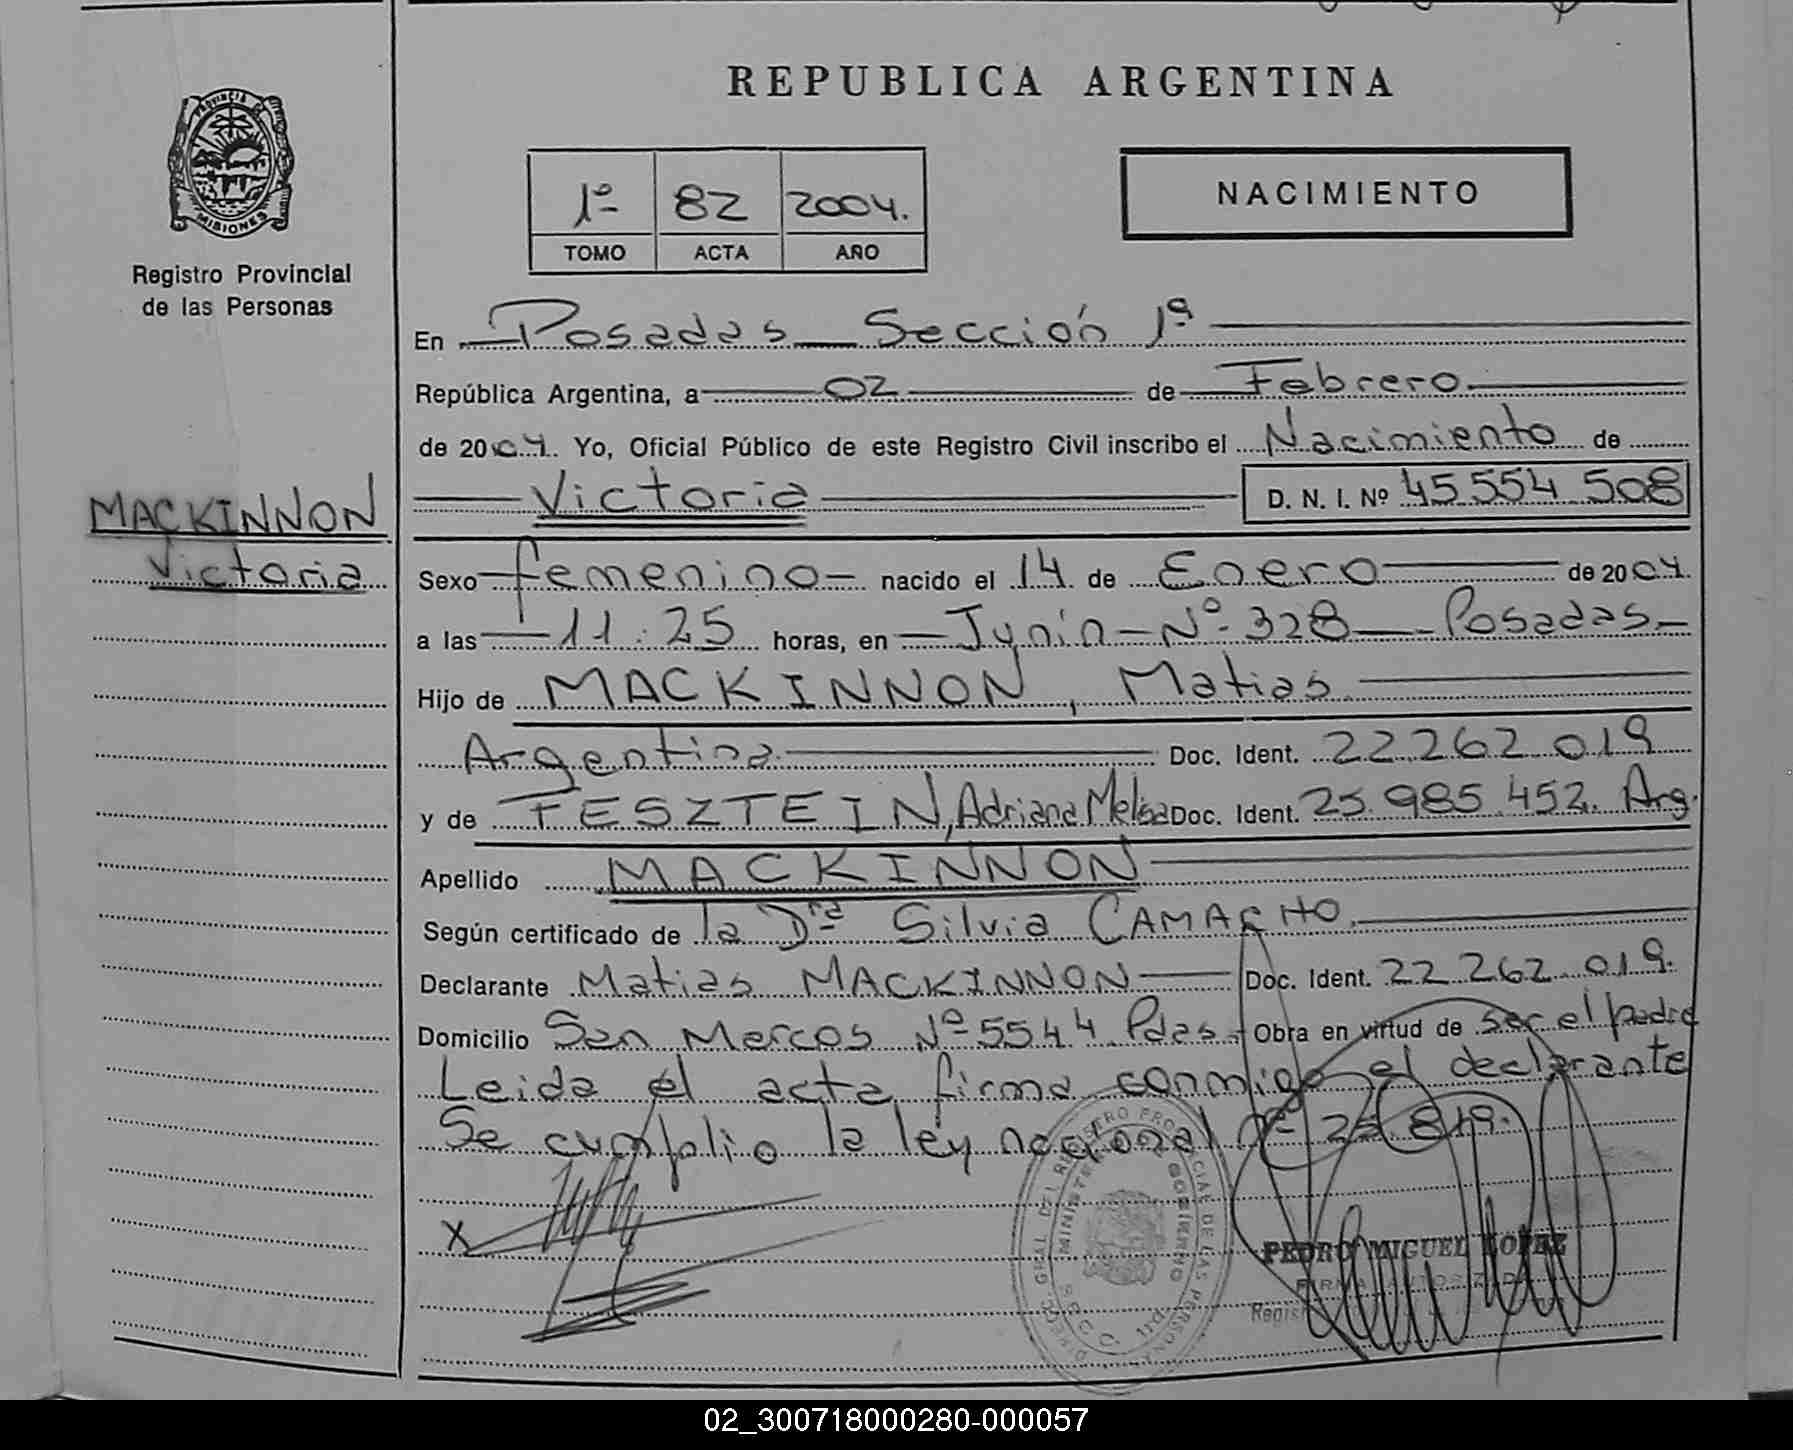 REPUBLICA ARGENTINA
PROVINCIA DE
MISIONES
Registro Provincial
de las Personas
1º 82 2004.
TOMO ACTA AÑO
NACIMIENTO
En Posadas Sección 1ª
República Argentina, a 02 de Febrero
de 2004. Yo, Oficial Público de este Registro Civil inscribo el Nacimiento de
Victoria D. N. I. Nº 45 554 508
MACKINNON
Victoria
Sexo femenino nacido el 14 de Enero de 2004.
a las 11:25 horas, en Junín Nº 328 Posadas
Hijo de MACKINNON, Matias
Argentina Doc. Ident. 22.262.019
y de FESZTEIN, Adriana Melisa Doc. Ident. 25.985.452. Arg.
Apellido MACKINNON
Según certificado de la Drª Silvia CAMACHO.
Declarante Matias MACKINNON Doc. Ident. 22 262.019.
Domicilio San Marcos Nº 5544 Pdas. Obra en virtud de ser el padre
Leida el acta firma conmigo el declarante
Se cumplio la ley nacional nº 25.819.
X
PEDRO MIGUEL LOPEZ
02_300718000280-000057